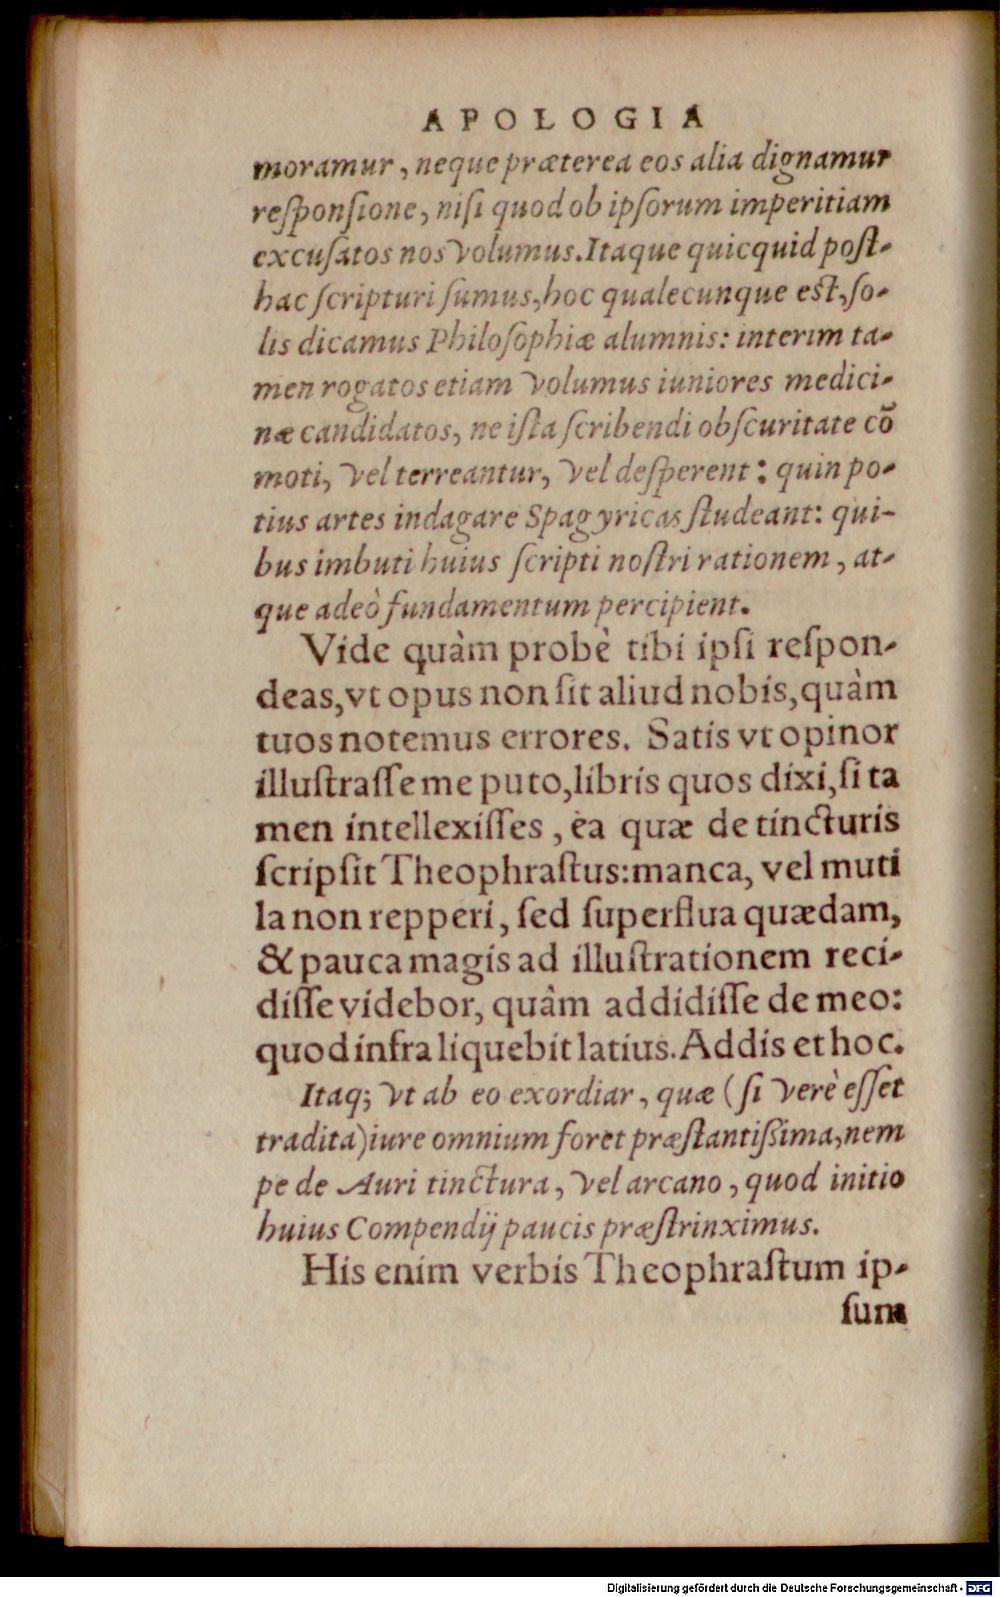 APOLOGIA
moramur, neque præterea eos alia dignamur
reſponſione, niſi quod ob ipſorum imperitiam
excuſatos nos volumus. Itaque quicquid poſt-
hac ſcripturi ſumus, hoc qualecunque eſt, ſo-
lis dicamus Philoſophiæ alumnis: interim ta-
men rogatos etiam volumus iuniores medici-
næ candidatos, ne iſta ſcribendi obſcuritate cō
moti, vel terreantur, vel deſperent: quin po-
tius artes indagare Spagyricas ſtudeant: qui-
bus imbuti huius ſcripti noſtri rationem, at-
que adeò fundamentum percipient.
Vide quàm probè tibi ipſi reſpon-
deas, vt opus non ſit aliud nobis, quàm
tuos notemus errores. Satis vt opinor
illuſtraſſe me puto, libris quos dixi, ſi ta
men intellexiſſes, ea quæ de tincturis
ſcripſit Theophraſtus: manca, vel muti
la non repperi, ſed ſuperflua quædam,
& pauca magis ad illuſtrationem reci-
diſſe videbor, quâm addidiſſe de meo:
quod infra liquebit latius. Addis et hoc.
Itaq; vt ab eo exordiar, quæ (ſi verè eſſet
tradita) iure omnium foret præſtantiſsima, nem
pe de Auri tinctura, vel arcano, quod initio
huius Compendij paucis præſtrinximus.
His enim verbis Theophraſtum ip-
ſum
Digitalisierung gefördert durch die Deutsche Forschungsgemeinschaft - DFG